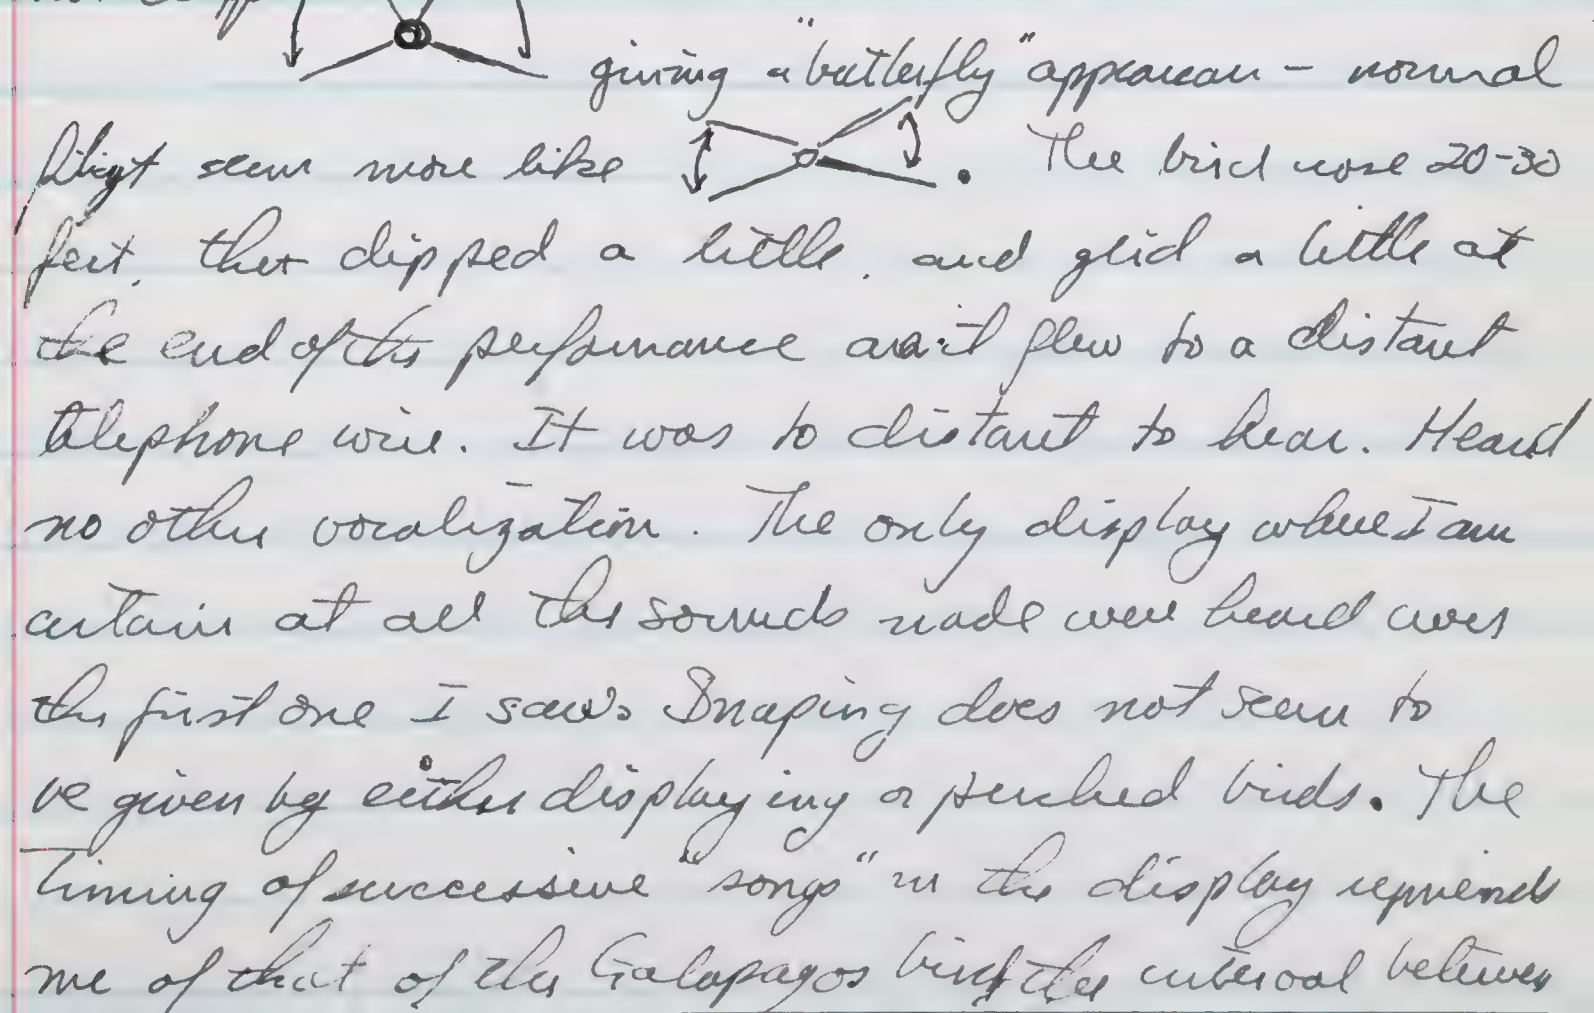 giving a "butterfly" appearance – normal
flight seem more like . The bird rose 20-30
feet, then dipped a little, and glid a little at
the end of the performance as it flew to a distant
telephone wire. It was to distant to hear. Heard
no other vocalization. The only display where I am
certain at all the sounds made were heard was
the first one I saw. Snaping does not seem to
be given by either displaying or perched birds. The
timing of successive "songs" in the display reminds
me of that of the Galapagos bird the interval between